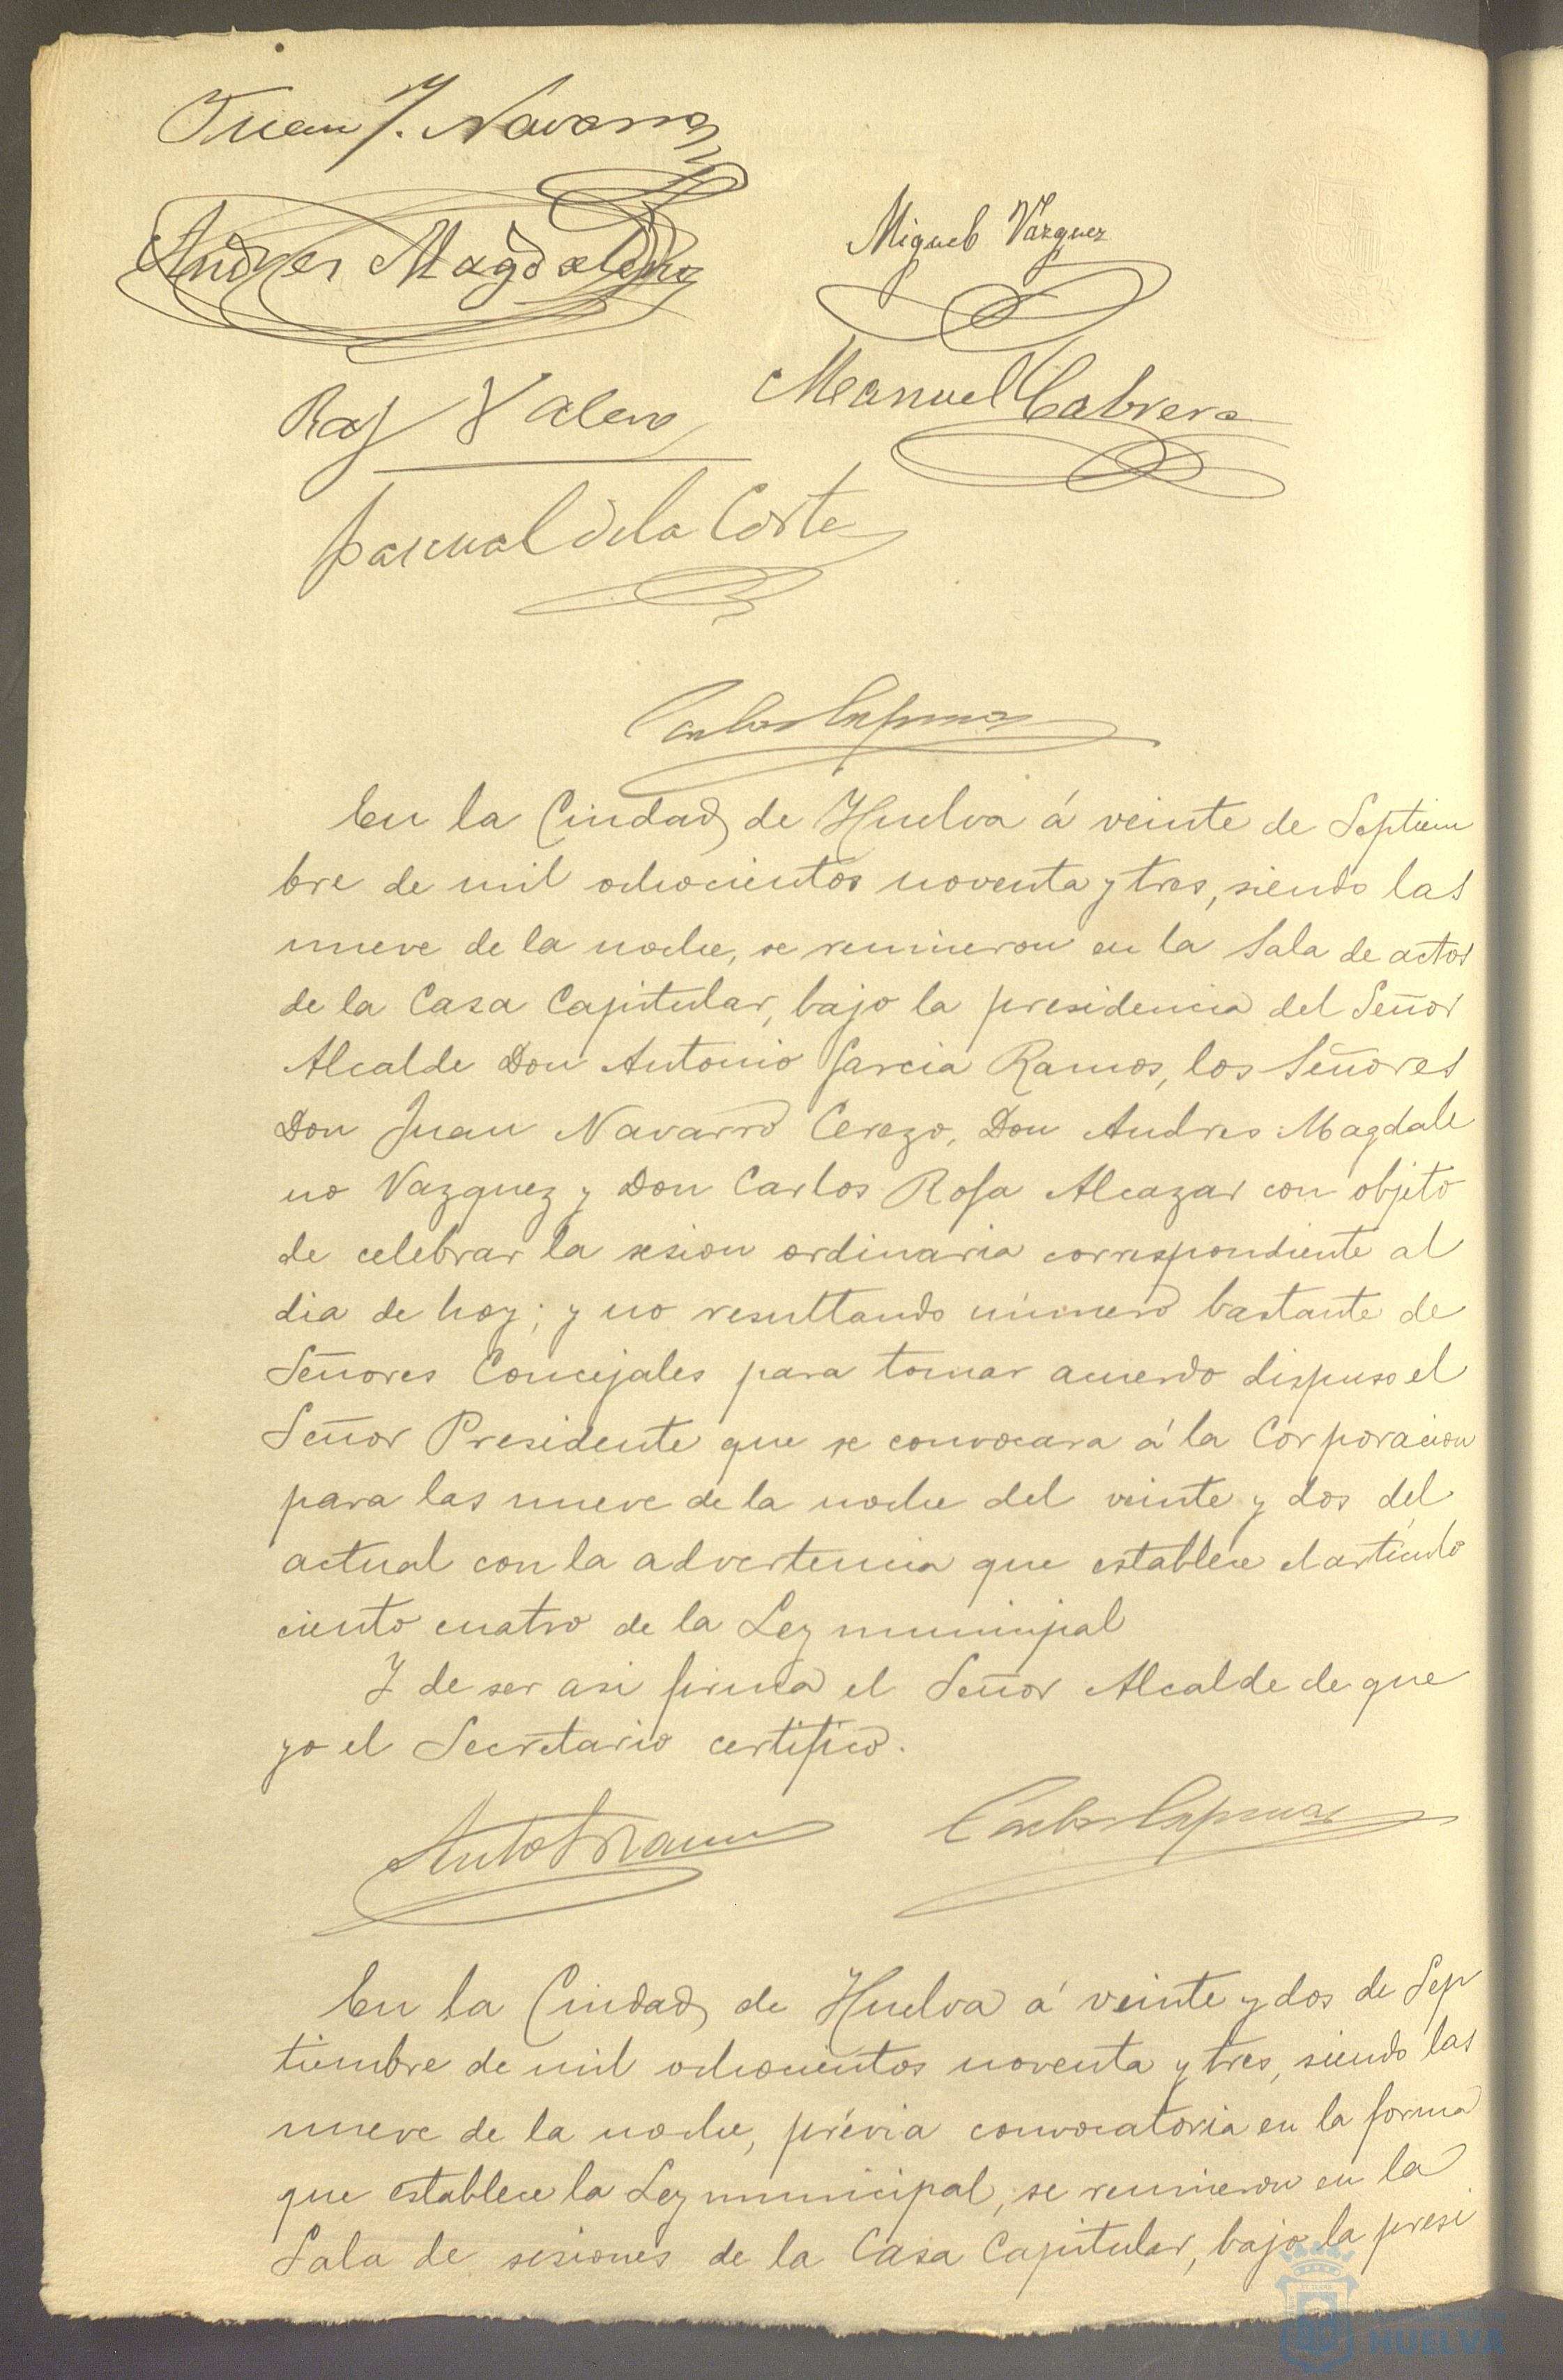 Juan J. Navarro
Andres Magdaleno
Miguel Vazquez
Manuel Cabrera
Raf Valero
Pascual de la Corte
Carlos
En la Ciudad de Huelva á veinte de Septiem
bre de mil ochocientos noventa y tres, siendo las
nueve de la noche, se reunieron en la Sala de actos
de la Casa Capitular, bajo la presidencia del Señor
Alcalde Don Antonio Garcia Ramos, los Señores
Don Juan Navarro Cerezo, Don Andres Magdale
no Vazquez y Don Carlos Rofa Alcazar con objeto
de celebrar la sesion ordinaria correspondiente al
dia de hoy; y no resultando número bastante de
Señores Concejales para tomar acuerdo dispuso el
Señor Presidente que se convocara á la Corporacion
para las nueve de la noche del veinte y dos del
actual con la advertencia que establece el artículo
ciento cuatro de la Ley municipal
Y de ser asi firma el Señor Alcalde de que
yo el Secretario certifico.
Anto G Ramos
Carlos
En la Ciudad de Huelva á veinte y dos de Sep
tiembre de mil ochocientos noventa y tres, siendo las
nueve de la noche, prévia convocatoria en la forma
que establece la Ley municipal, se reunieron en la
Sala de sesiones de la Casa Capitular, bajo la presi
HUELVA